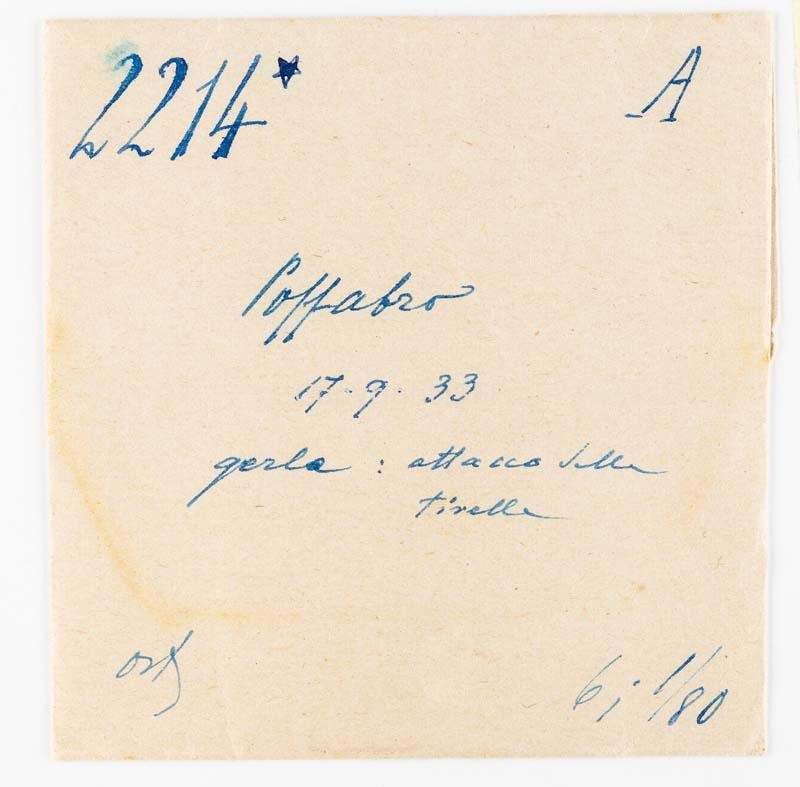 2214* A
Poffabro
17-9-33
gerla : attacco delle
tirelle
6; 1/80